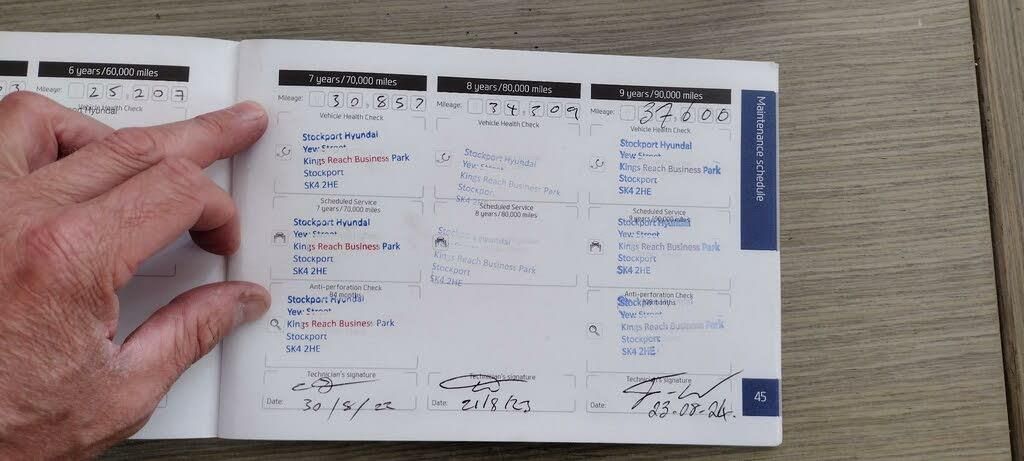 03
6 years/60,000 miles
25,207
Vehicle Health Check
Hyundai
7 years/70,000 miles
Mileage: 30,857
Vehicle Health Check
Stockport Hyundai
Yew Street
Kings Reach Business Park
Stockport
SK4 2HE
Scheduled Service
7 years/70,000 miles
Stockport Hyundai
Yew Street
Kings Reach Business Park
Stockport
SK4 2HE
Anti-perforation Check
84 months
Stockport Hyundai
Yew Street
Kings Reach Business Park
Stockport
SK4 2HE
Technician's signature
Date: 30/8/22
8 years/80,000 miles
Mileage: 34,209
Vehicle Health Check
Stockport Hyundai
Yew Street
Kings Reach Business Park
Stockport
SK4 2HE
Scheduled Service
8 years/80,000 miles
Stockport Hyundai
Kings Reach Business Park
Stockport
SK4 2HE
Technician's signature
Date: 21/8/23
9 years/90,000 miles
Mileage: 37,600
Vehicle Health Check
Stockport Hyundai
Yew Street
Kings Reach Business Park
Stockport
SK4 2HE
Scheduled Service
9 years/90,000 miles
Stockport Hyundai
Yew Street
Kings Reach Business Park
Stockport
SK4 2HE
Anti-perforation Check
Stockport
Yew Street
Kings Reach Business Park
Stockport
SK4 2HE
Technician's signature
Date: 23-08-24.
Maintenance schedule
45